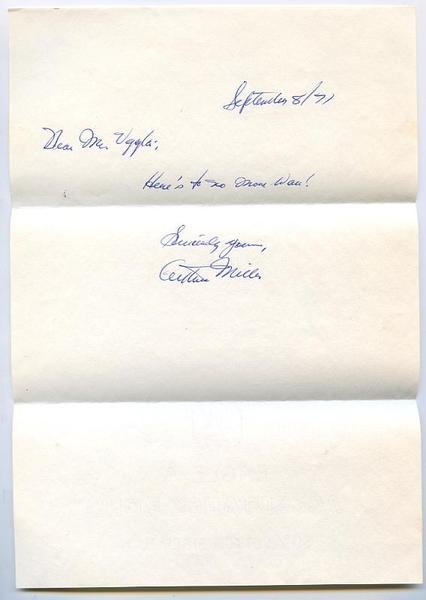 September 8/71
Dear Mr. Uggla,
Here's to no more War!
Sincerely yours,
Arthur Miller